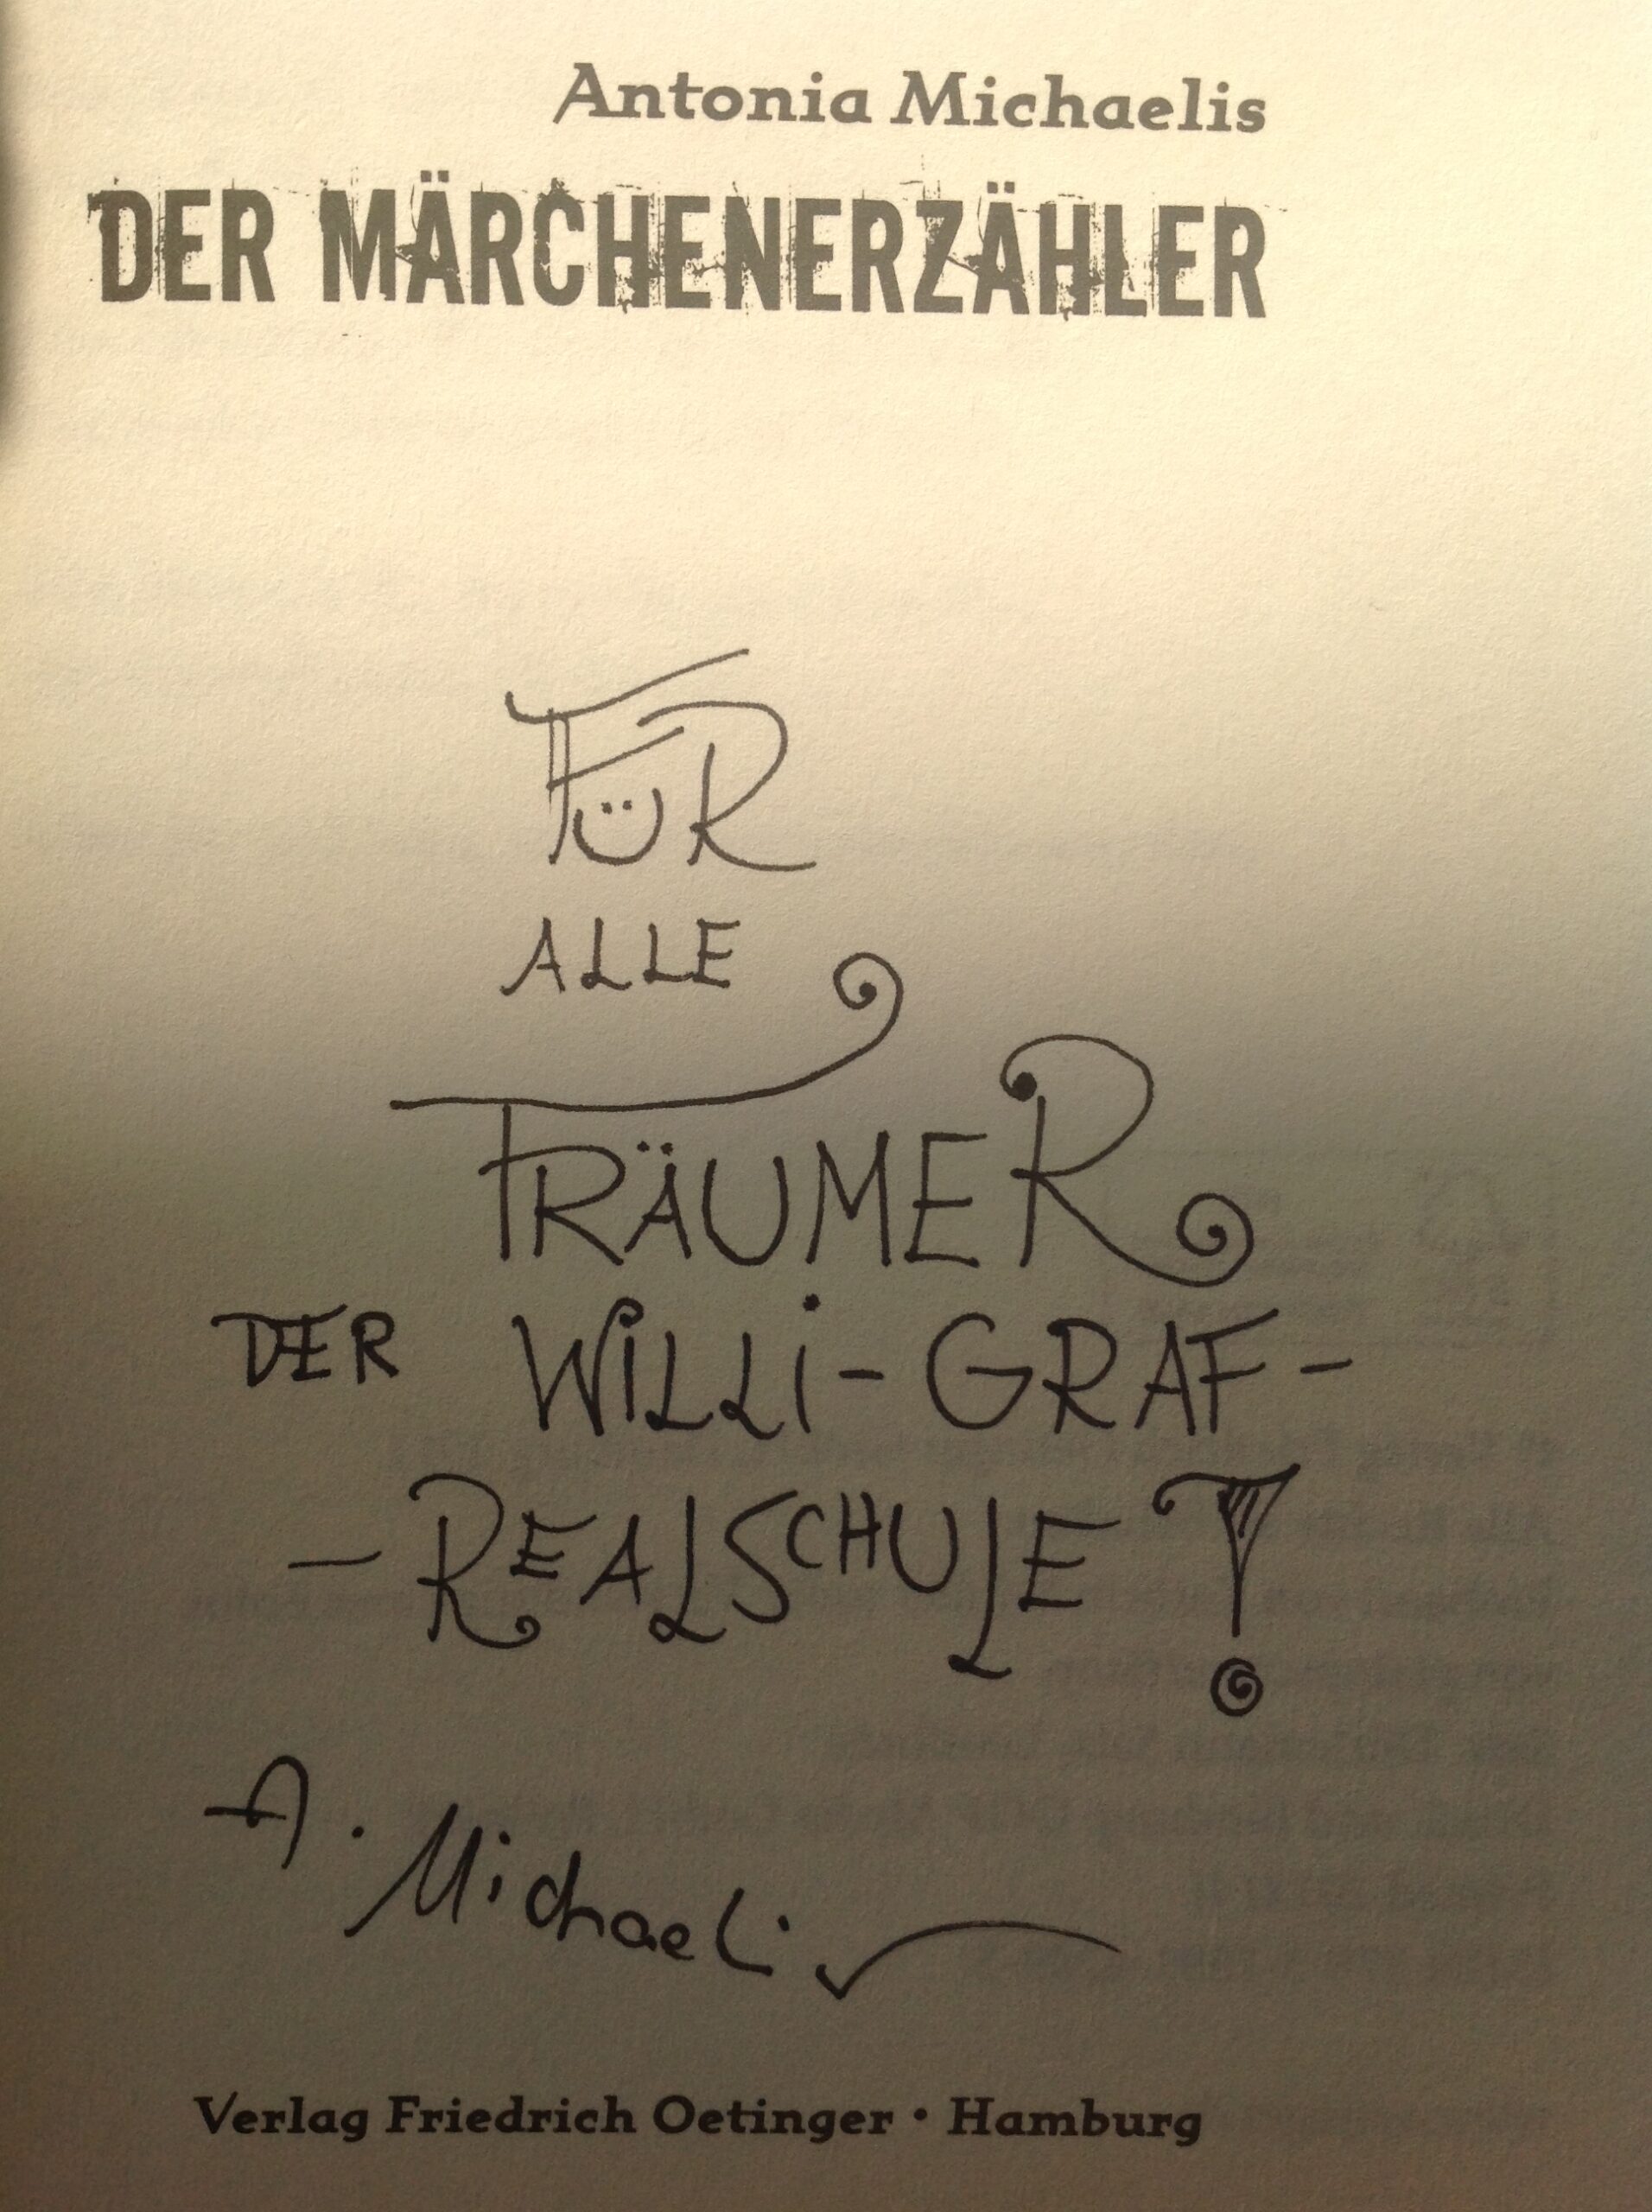 Antonia Michaelis
DER MÄRCHENERZÄHLER
FÜR
ALLE
TRÄUMER
DER WILLI-GRAF-
-REALSCHULE!
A. Michaelis
Verlag Friedrich Oetinger • Hamburg